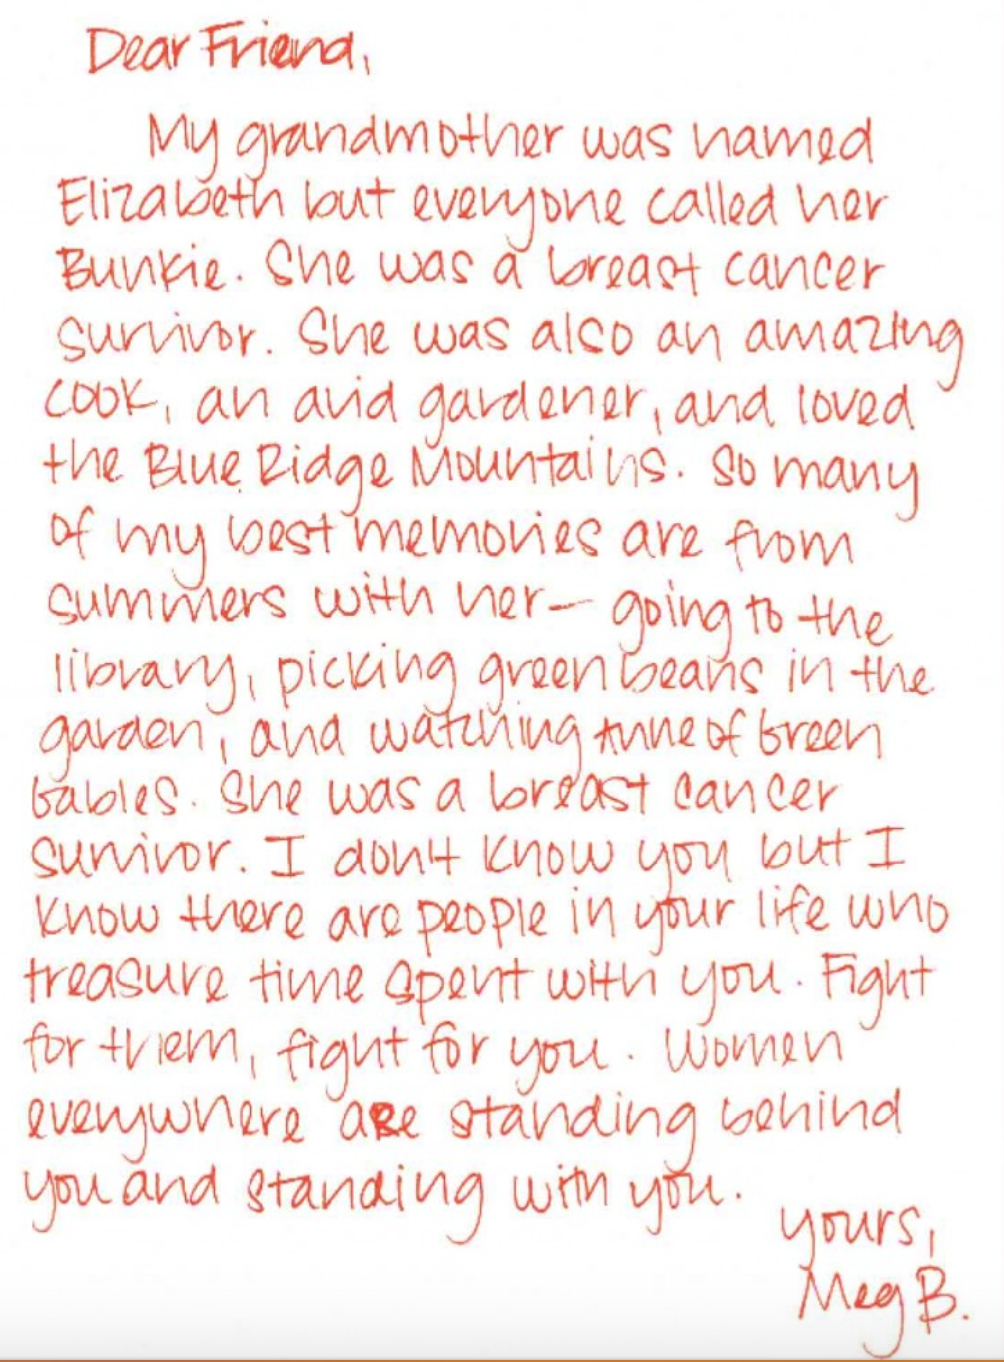 Dear Friend,
My grandmother was named
Elizabeth but everyone called her
Bunkie. She was a breast cancer
survivor. She was also an amazing
cook, an avid gardener, and loved
the Blue Ridge Mountains. So many
of my best memories are from
summers with her— going to the
library, picking green beans in the
garden, and watching Anne of Green
Gables. She was a breast cancer
survivor. I don't know you but I
know there are people in your life who
treasure time spent with you. Fight
for them, fight for you. Women
everywhere are standing behind
you and standing with you.
yours,
Meg B.